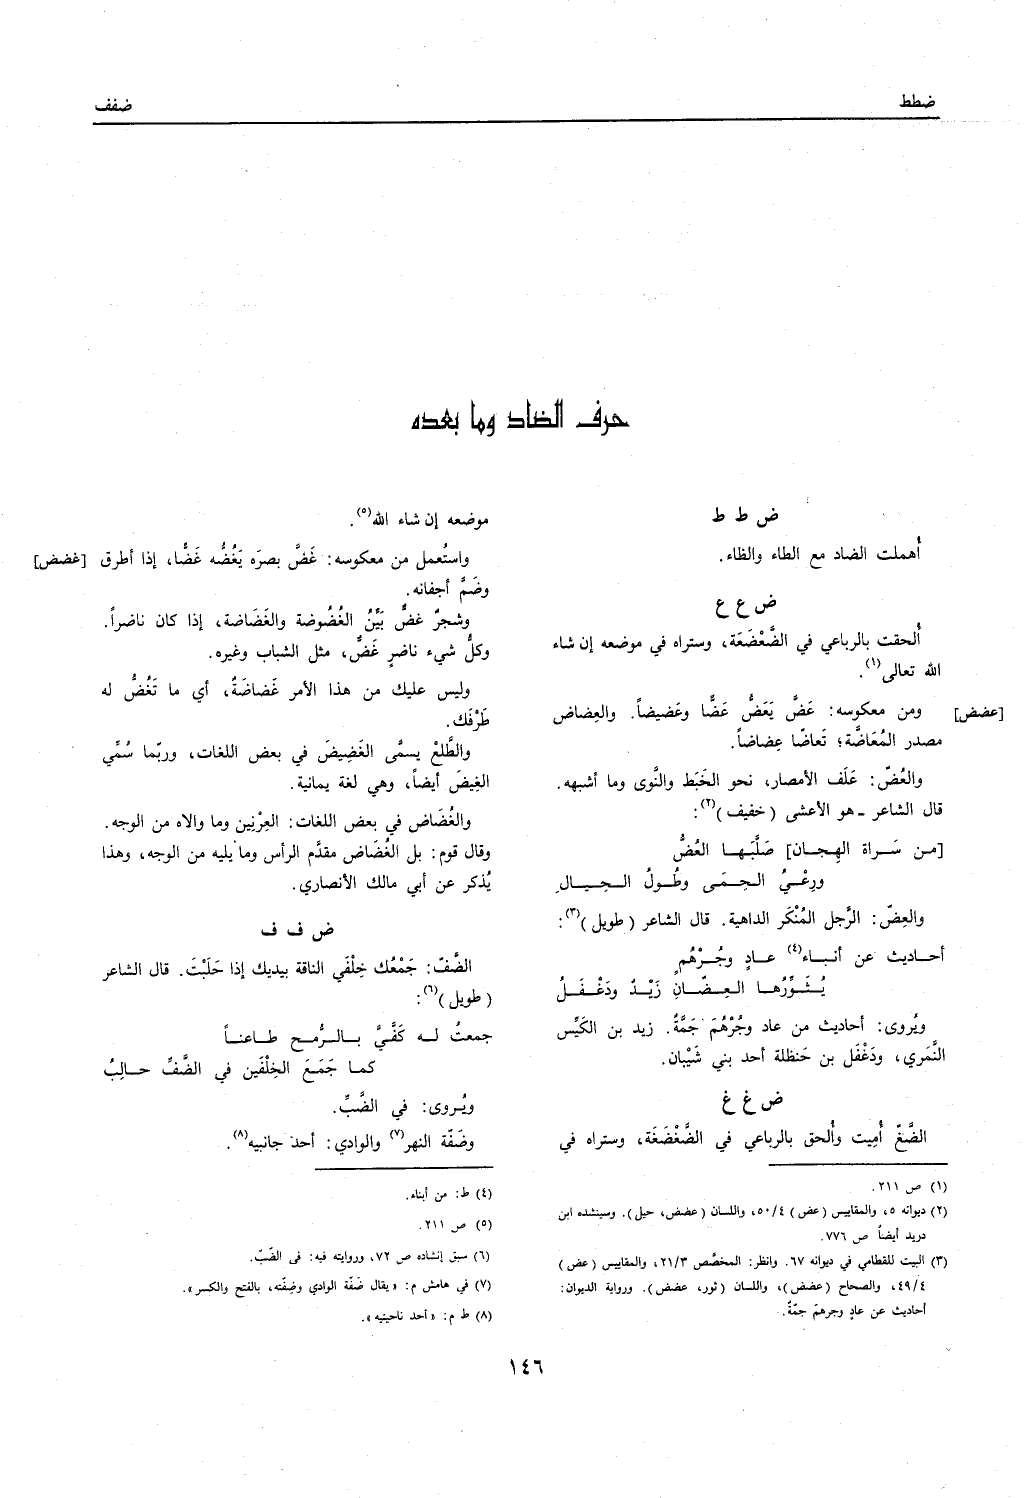 ضطط
ضفف
حرف الضاد وما بعده
ض ط ط
أُهملت الضاد مع الطاء والظاء.
ض ع ع
أُلحقت بالرباعي في الضَّعْضَعَة، وستراه في موضعه إن شاء
الله تعالى(١).
[عضض] ومن معكوسه: عَضَّ يَعَضُّ عَضًّا وعَضيضاً. والعِضاض
مصدر المُعَاضَّة؛ تَعاضّا عِضاضاً.
والعُضّ: عَلَف الأمصار، نحو الخَبَط والنَّوى وما أشبهه.
قال الشاعر ـ هو الأعشى (خفيف)(٢):
[من سَراة الهِجان] صَلَّبَها العُضُّ
ورِعْيُ الحِمَى وطُولُ الحِيالِ
والعِضّ: الرَّجل المُنْكَر الداهية. قال الشاعر (طويل)(٣):
أحاديث عن أنباء(٤) عادٍ وجُرْهُمٍ
يُثَوِّرُها العِضّانِ زَيْدٌ ودَغْفَلُ
ويُروى: أحاديث من عاد وجُرْهُمَ جَمَّةٌ. زيد بن الكَيِّس
النَّمَري، ودَغْفَل بن حَنظلة أحد بني شَيْبان.
ض غ غ
الضَّغّ أُميت وأُلحق بالرباعي في الضَّغْضَغَة، وستراه في
(١) ص ٢١١.
(٢) ديوانه ٥، والمقاييس (عض) ٥٠/٤، واللسان (عضض، حيل). وسينشده ابن
دريد أيضاً ص ٧٧٦.
(٣) البيت للقطامي في ديوانه ٦٧. وانظر: المخصَّص ٢١/٣، والمقاييس (عض)
٤٩/٤، والصحاح (عضض)، واللسان (ثور، عضض). ورواية الديوان:
أحاديث عن عادٍ وجرهمَ جمّةٌ.
موضعه إن شاء الله(٥).
واستُعمل من معكوسه: غَضَّ بصرَه يَغُضُّه غَضًّا، إذا أطرق [غضض]
وضَمَّ أجفانه.
وشجرٌ غضٌّ بَيِّنُ الغُضُوضة والغَضَاضة، إذا كان ناضراً.
وكلُّ شيء ناضرٍ غَضٌّ، مثل الشباب وغيره.
وليس عليك من هذا الأمر غَضاضَةٌ، أي ما تَغُضُّ له
طَرْفَك.
والطَّلْعُ يسمَّى الغَضِيضَ في بعض اللغات، وربّما سُمِّي
الغِيضَ أيضاً، وهي لغة يمانية.
والغُضَاض في بعض اللغات: العِرْنِين وما والاه من الوجه.
وقال قوم: بل الغُضَاض مقدَّم الرأس وما يليه من الوجه، وهذا
يُذكر عن أبي مالك الأنصاري.
ض ف ف
الضَّفّ: جَمْعُك خِلْفَي الناقة بيديك إذا حَلَبْتَ. قال الشاعر
(طويل)(٦):
جمعتُ له كَفَّيَّ بالرُّمح طاعناً
كما جَمَعَ الخِلْفَين في الضَّفِّ حالِبُ
ويُروى: في الضَّبِّ.
وضَفّة النهر(٧) والوادي: أحد جانبيه(٨).
(٤) ط: من أبناء.
(٥) ص ٢١١.
(٦) سبق إنشاده ص ٧٢، وروايته فيه: في الضَّبّ.
(٧) في هامش م: «يقال ضَفّة الوادي وضِفّته، بالفتح والكسر».
(٨) ط م: «أحد ناحيتيه».
١٤٦